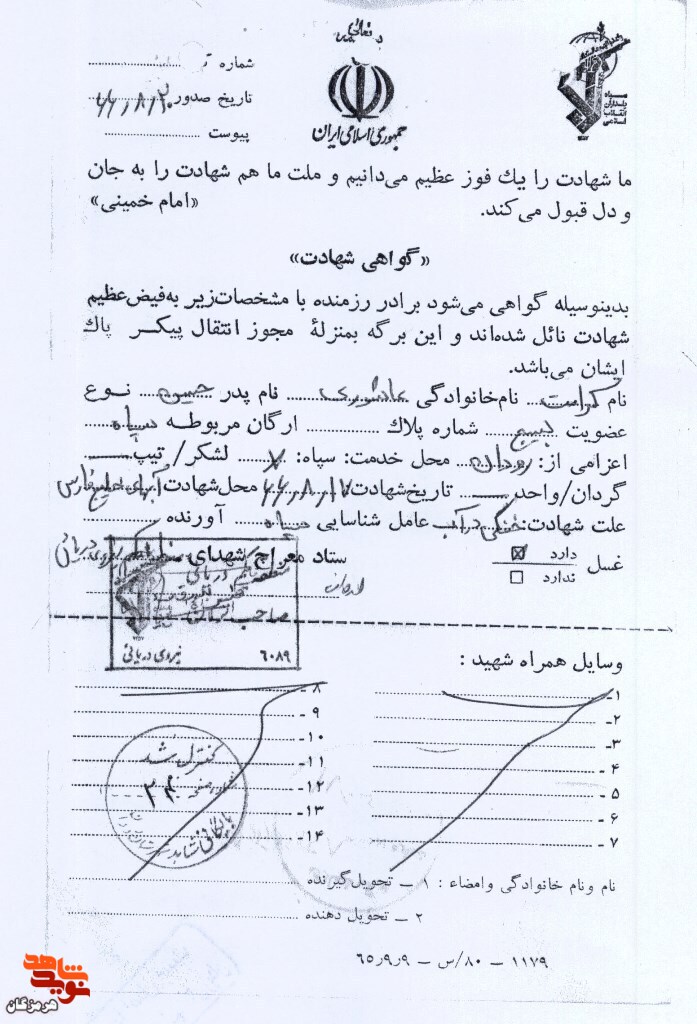 تعالی
شماره
تاریخ صدور ۶۶٫۸٫۲۰
پیوست
جمهوری اسلامی ایران
سپاه پاسداران انقلاب اسلامی
ما شهادت را یك فوز عظیم می‌دانیم و ملت ما هم شهادت را به جان
و دل قبول می‌کند. «امام خمینی»
«گواهی شهادت»
بدینوسیله گواهی می‌شود برادر رزمنده با مشخصات زیر به‌فیض عظیم
شهادت نائل شده‌اند و این برگه بمنزلهٔ مجوز انتقال پیکر پاك
ایشان می‌باشد.
نام کرامت نام‌خانوادگی نام پدر حسین نوع
عضویت بسیج شماره پلاك ارگان مربوطه سپاه
اعزامی از: رودان محل خدمت: سپاه: ۷ لشکر/ تیپ
گردان/واحد تاریخ‌شهادت ۶۶٫۸٫۱۷ محل‌شهادت آبهای خلیج فارس
علت شهادت: عامل شناسایی سپاه آورنده
غسل دارد ☒
ندارد ☐
ستاد معراج شهدای
منطقه یکم دریائی
صاحب الزمان
نیروی دریائی ۶۰۸۹
وسایل همراه شهید :
۱ـ
۲ـ
۳ـ
۴ـ
۵ـ
۶ـ
۷ـ
۸ـ
۹ـ
۱۰ـ
۱۱ـ
۱۲ـ
۱۳ـ
۱۴ـ
کنترل شد
بایگانی
نام ونام خانوادگی وامضاء : ۱ ـ تحویل‌گیرنده
۲ ـ تحویل دهنده
۱۱۷۹ – ۸۰/س – ۶۵٫۹٫۹
نوید شاهد
هرمزگان